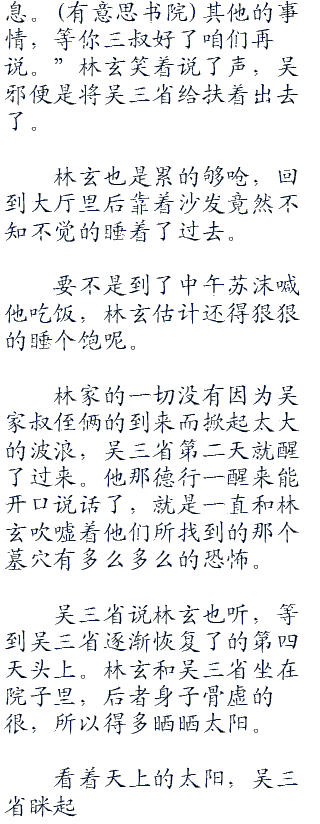 息。(有意思书院)其他的事
情，等你三叔好了咱们再
说。”林玄笑着说了声，吴
邪便是将吴三省给扶着出去
了。
林玄也是累的够呛，回
到大厅里后靠着沙发竟然不
知不觉的睡着了过去。
要不是到了中午苏沫喊
他吃饭，林玄估计还得狠狠
的睡个饱呢。
林家的一切没有因为吴
家叔侄俩的到来而掀起太大
的波浪，吴三省第二天就醒
了过来。他那德行一醒来能
开口说话了，就是一直和林
玄吹嘘着他们所找到的那个
墓穴有多么多么的恐怖。
吴三省说林玄也听，等
到吴三省逐渐恢复了的第四
天头上。林玄和吴三省坐在
院子里，后者身子骨虚的
很，所以得多晒晒太阳。
看着天上的太阳，吴三
省眯起